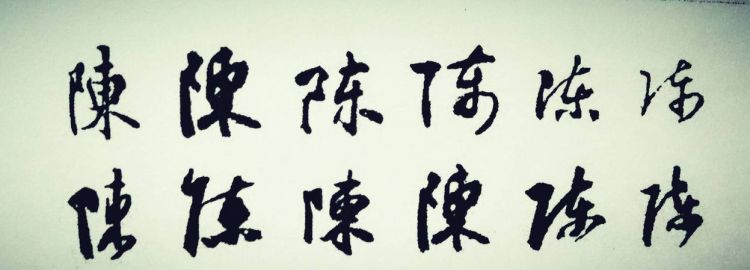 陳 陳 陈 陈 陈 陈
陳 陈 陳 陳 陈 陈